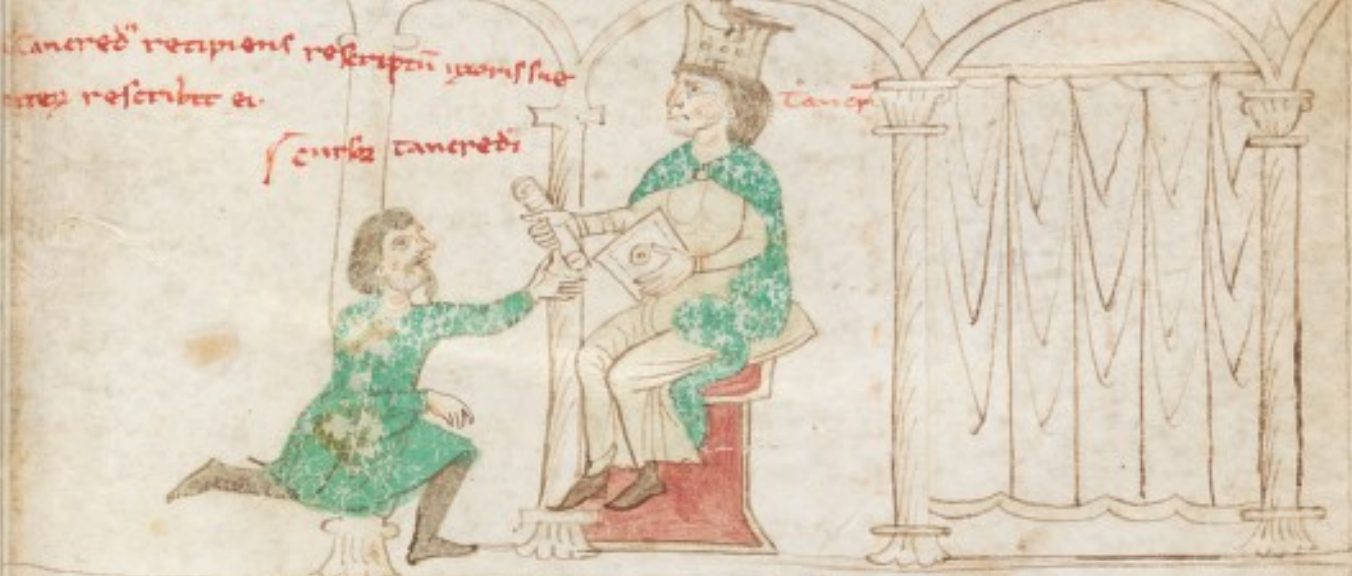 Tancred' recipiens rescriptū uxoris sue
iterȝ rescribit ei.
Cursor tancredi
Tancr̄